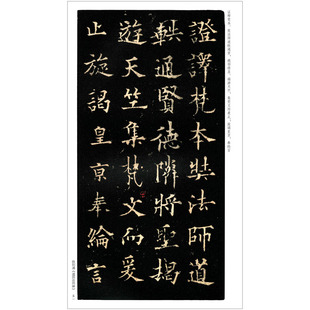 證譯梵本奘法師道
軼通賢德隣將聖揭
遊天竺集梵文而爰
止旋謁皇亰奉綸言